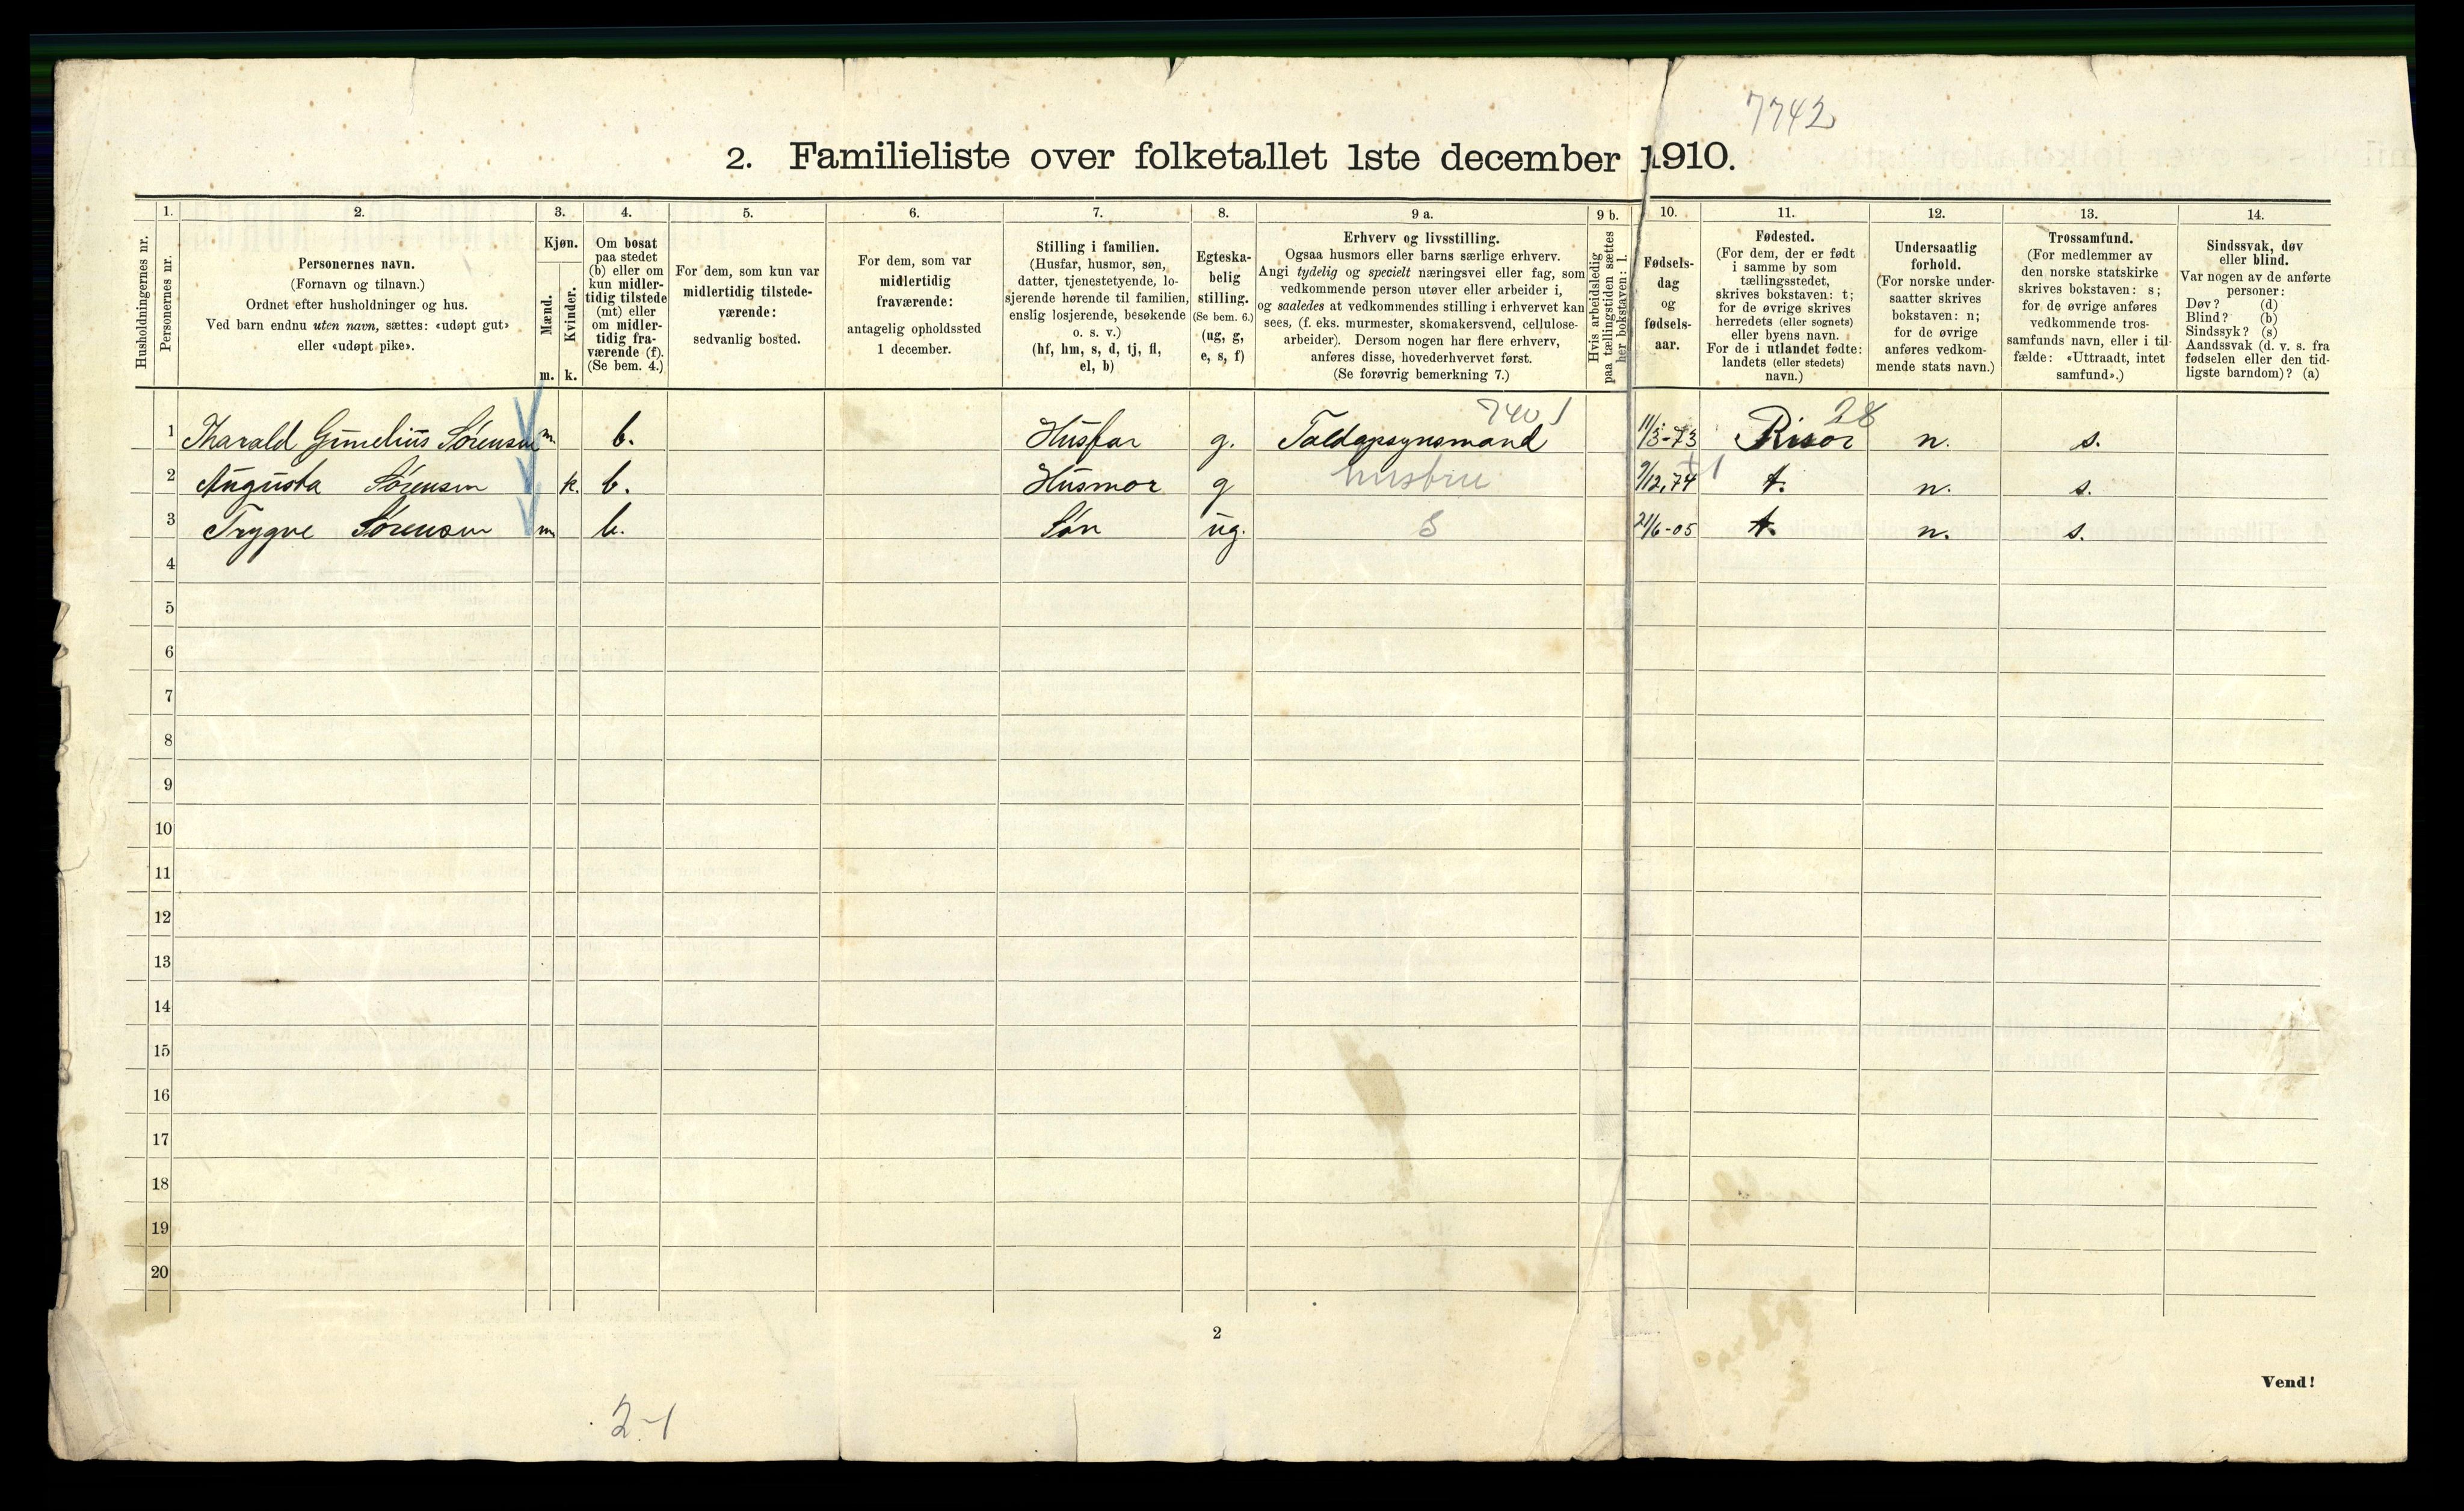 7742
2. Familieliste over folketallet 1ste december 1910.
1. 2. 3. 4. 5. 6. 7. 8. 9 a. 9 b. 10. 11. 12. 13. 14.
Husholdningernes nr.
Personernes nr.
Personernes navn.
(Fornavn og tilnavn.)
Ordnet efter husholdninger og hus.
Ved barn endnu uten navn, sættes: «udøpt gut»
eller «udøpt pike».
Kjøn.
Mænd.
Kvinder.
m. k.
Om bosat
paa stedet
(b) eller om
kun midler-
tidig tilstede
(mt) eller
om midler-
tidig fra-
værende (f).
(Se bem. 4.)
For dem, som kun var
midlertidig tilstede-
værende:
sedvanlig bosted.
For dem, som var
midlertidig
fraværende:
antagelig opholdssted
1 december.
Stilling i familien.
(Husfar, husmor, søn,
datter, tjenestetyende, lo-
sjerende hørende til familien,
enslig losjerende, besøkende
o. s. v.)
(hf, hm, s, d, tj, fl,
el, b)
Egteska-
belig
stilling.
(Se bem. 6.)
(ug, g,
e, s, f)
Erhverv og livsstilling.
Ogsaa husmors eller barns særlige erhverv.
Angi tydelig og specielt næringsvei eller fag, som
vedkommende person utøver eller arbeider i,
og saaledes at vedkommendes stilling i erhvervet kan
sees, (f. eks. murmester, skomakersvend, cellulose-
arbeider). Dersom nogen har flere erhverv,
anføres disse, hovederhvervet først.
(Se forøvrig bemerkning 7.)
Hvis arbeidsledig
paa tællingstiden sættes
her bokstaven: l.
Fødsels-
dag
og
fødsels-
aar.
Fødested.
(For dem, der er født
i samme by som
tællingsstedet,
skrives bokstaven: t;
for de øvrige skrives
herredets (eller sognets)
eller byens navn.
For de i utlandet fødte:
landets (eller stedets)
navn.)
Undersaatlig
forhold.
(For norske under-
saatter skrives
bokstaven: n;
for de øvrige
anføres vedkom-
mende stats navn.)
Trossamfund.
(For medlemmer av
den norske statskirke
skrives bokstaven: s;
for de øvrige anføres
vedkommende tros-
samfunds navn, eller i til-
fælde: «Uttraadt, intet
samfund».)
Sindssvak, døv
eller blind.
Var nogen av de anførte
personer:
Døv? (d)
Blind? (b)
Sindssyk? (s)
Aandssvak (d. v. s. fra
fødselen eller den tid-
ligste barndom)? (a)
740 1 28
1 Tharald Gunelius Sørensen m. b. Husfar g. Toldopsynsmand 11/3-73 Risør n. s.
2 Augusta Sørensen k. b. Husmor g hustru 9/12,74 t. n. s.
3 Trygve Sørensen m b. Søn ug. S 21/6-05 t. n. s.
4
5
6
7
8
9
10
11
12
13
14
15
16
17
18
19
20
2
Vend!
2-1